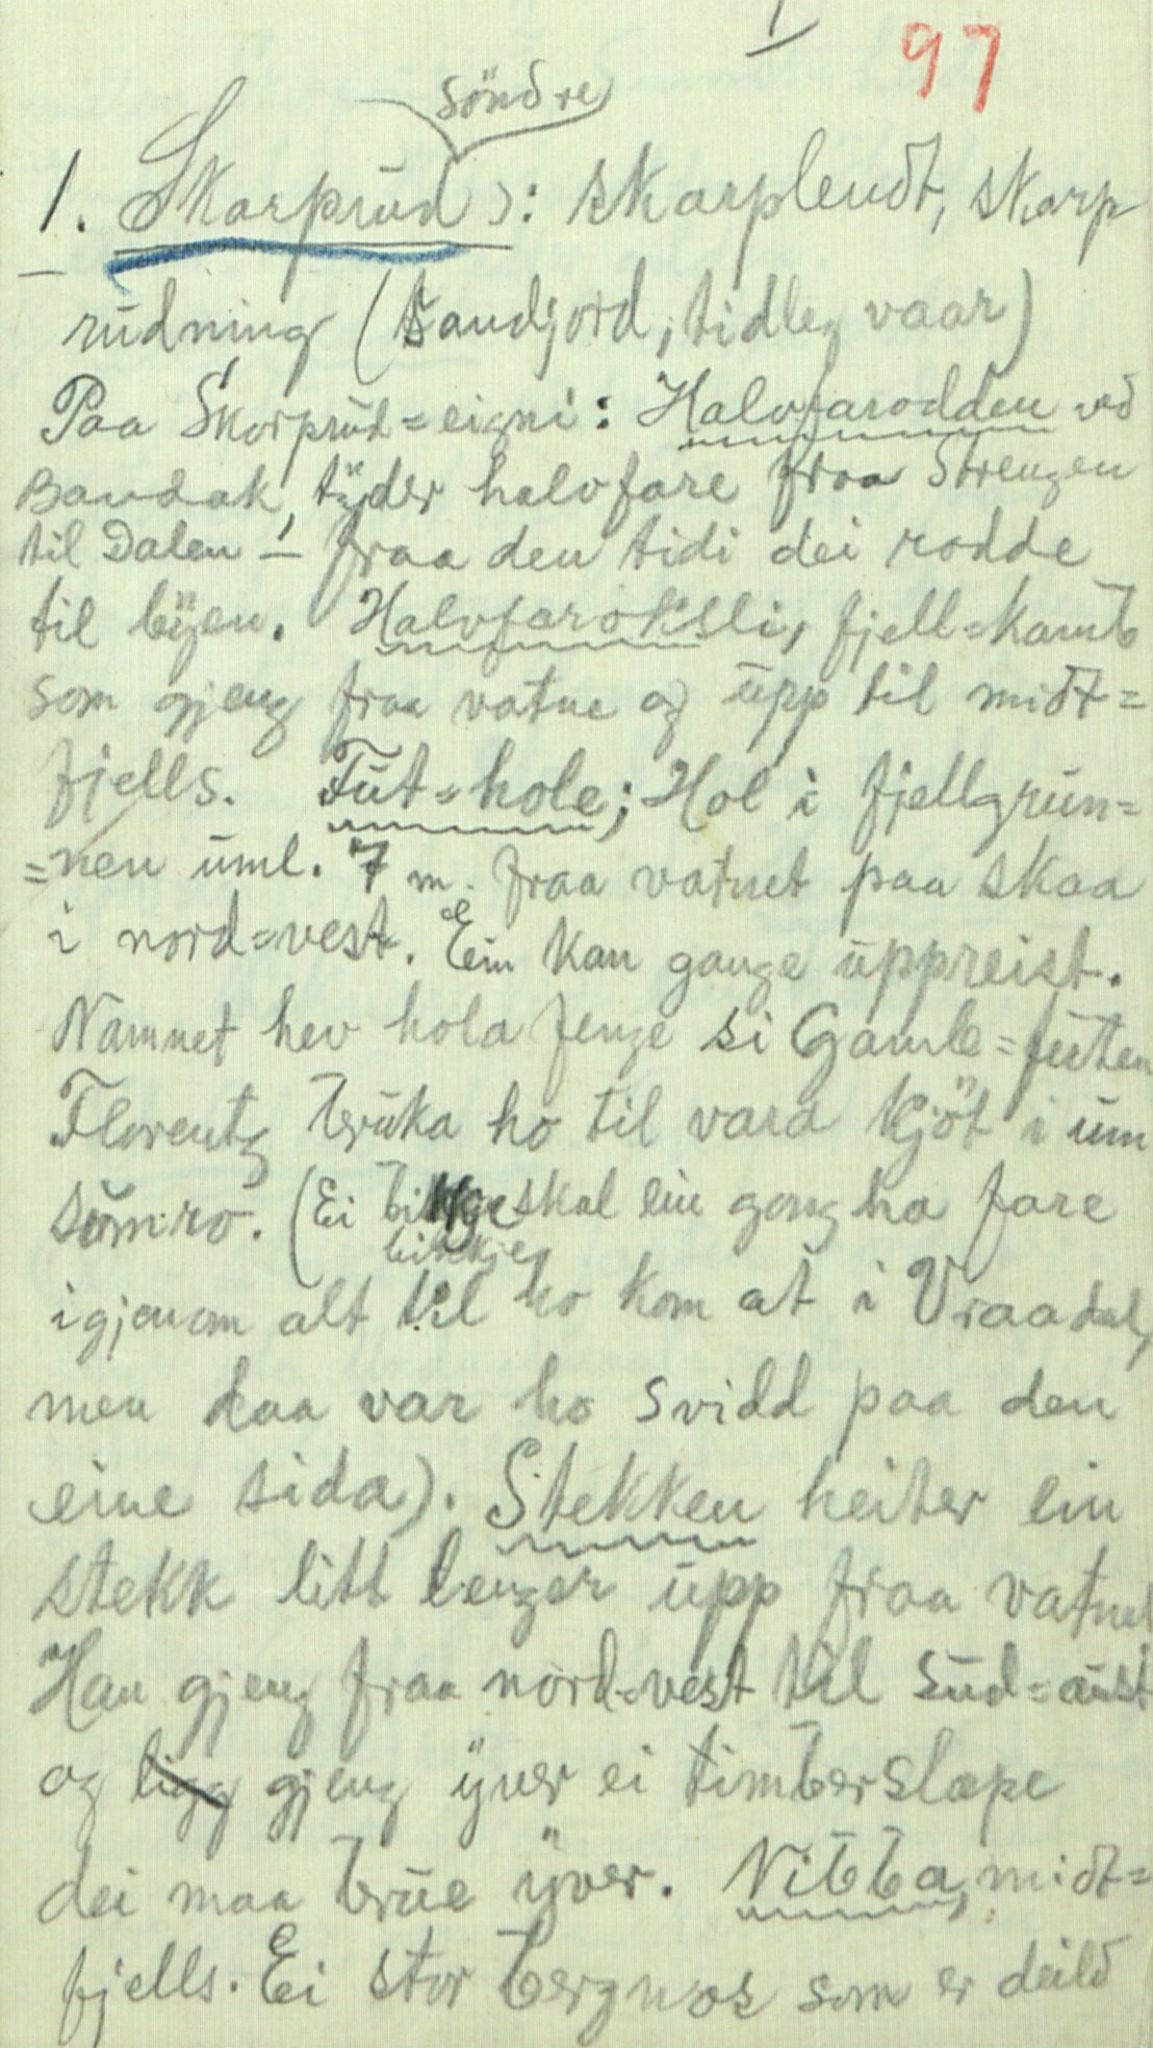 1
97
söndre
1. Skarprud ): skarplendt, skarp
rudning (sandjord, tidleg vaar)
Paa Skorprud=eigni: Halvfarodden ved
Bandak, tyder halvfare fraa Strengen
til Dalen – fraa den tidi dei rodde
til byen. Halvfaroksli, fjell=kamb
som gjeng fraa vatne og upp til midt=
fjells. Fut=hole; Hol i fjellgrun=
=nen uml. 7 m. fraa vatnet paa skaa
i nord=vest. Ein kan gange uppreist.
Namnet hev hola fenge si Gamle=futen
Florentz bruka ho til vara kjöt i um
sumro. (Ei bikkje skal ein gong ha fare
bikkje
igjenom alt til ho kom at i Vraadal,
men daa var ho svidd paa den
eine sida). Stekken heiter ein
stekk litt lenger upp fraa vatnet
Han gjeng fraa nord=vest til sud=aust
og ligg gjeng yver ei timberslæpe
dei maa brue yver. Nibba, midt=
fjells. Ei stor bergnos som er deild